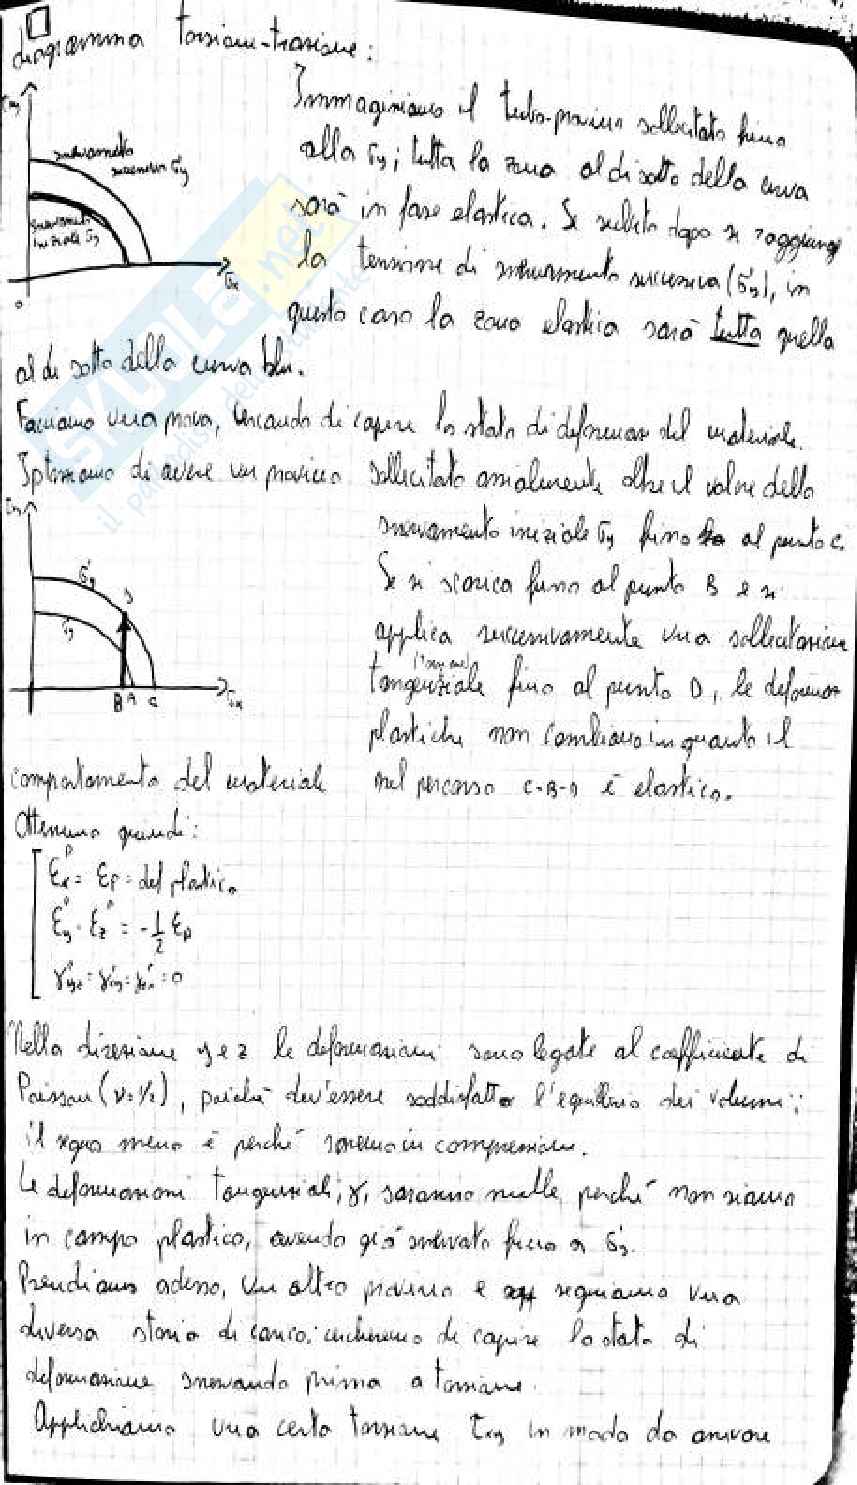 diagramma torsione-trazione:
Immaginiamo il tubo-provino sollecitato fino
alla σy; tutta la zona al di sotto della curva
sarà in fase elastica. Se subito dopo si raggiunge
la tensione di snervamento successiva (σ'y), in
questo caso la zona elastica sarà tutta quella
al di sotto della curva blu.
snervamento
successivo σ'y
snervamento
iniziale σy
σx
0
SKUOLA.net
il paradiso dello studente
Facciamo una prova, cercando di capire lo stato di deformaz del materiale.
Ipotizziamo di avere un provino sollecitato assialmente oltre il valore dello
snervamento iniziale σy fino al punto C.
Se si scarica fino al punto B e si
applica successivamente una sollecitazione
tangenziale fino al punto D, le deformaz
plastiche non cambiano in quanto il
comportamento del materiale nel percorso C-B-D è elastico.
σ'y
σy
D
B A C
σx
Otteniamo quindi:
εxᵖ = εp = def plastica
εyᵖ = εzᵖ = -1/2 εp
= 0
Nella direzione y e z le deformazioni sono legate al coefficiente di
Poisson (ν=1/2), poiché dev'essere soddisfatto l'equilibrio dei volumi;
il segno meno è perché saremo in compressione.
Le deformazioni tangenziali, γ, saranno nulle, perché non siamo
in campo plastico, avendo già snervato fino a σ'y.
Prendiamo adesso, un altro provino e seguiamo una
diversa storia di carico: cercheremo di capire lo stato di
deformazione snervando prima a torsione.
Applichiamo una certa torsione τxy in modo da arrivare